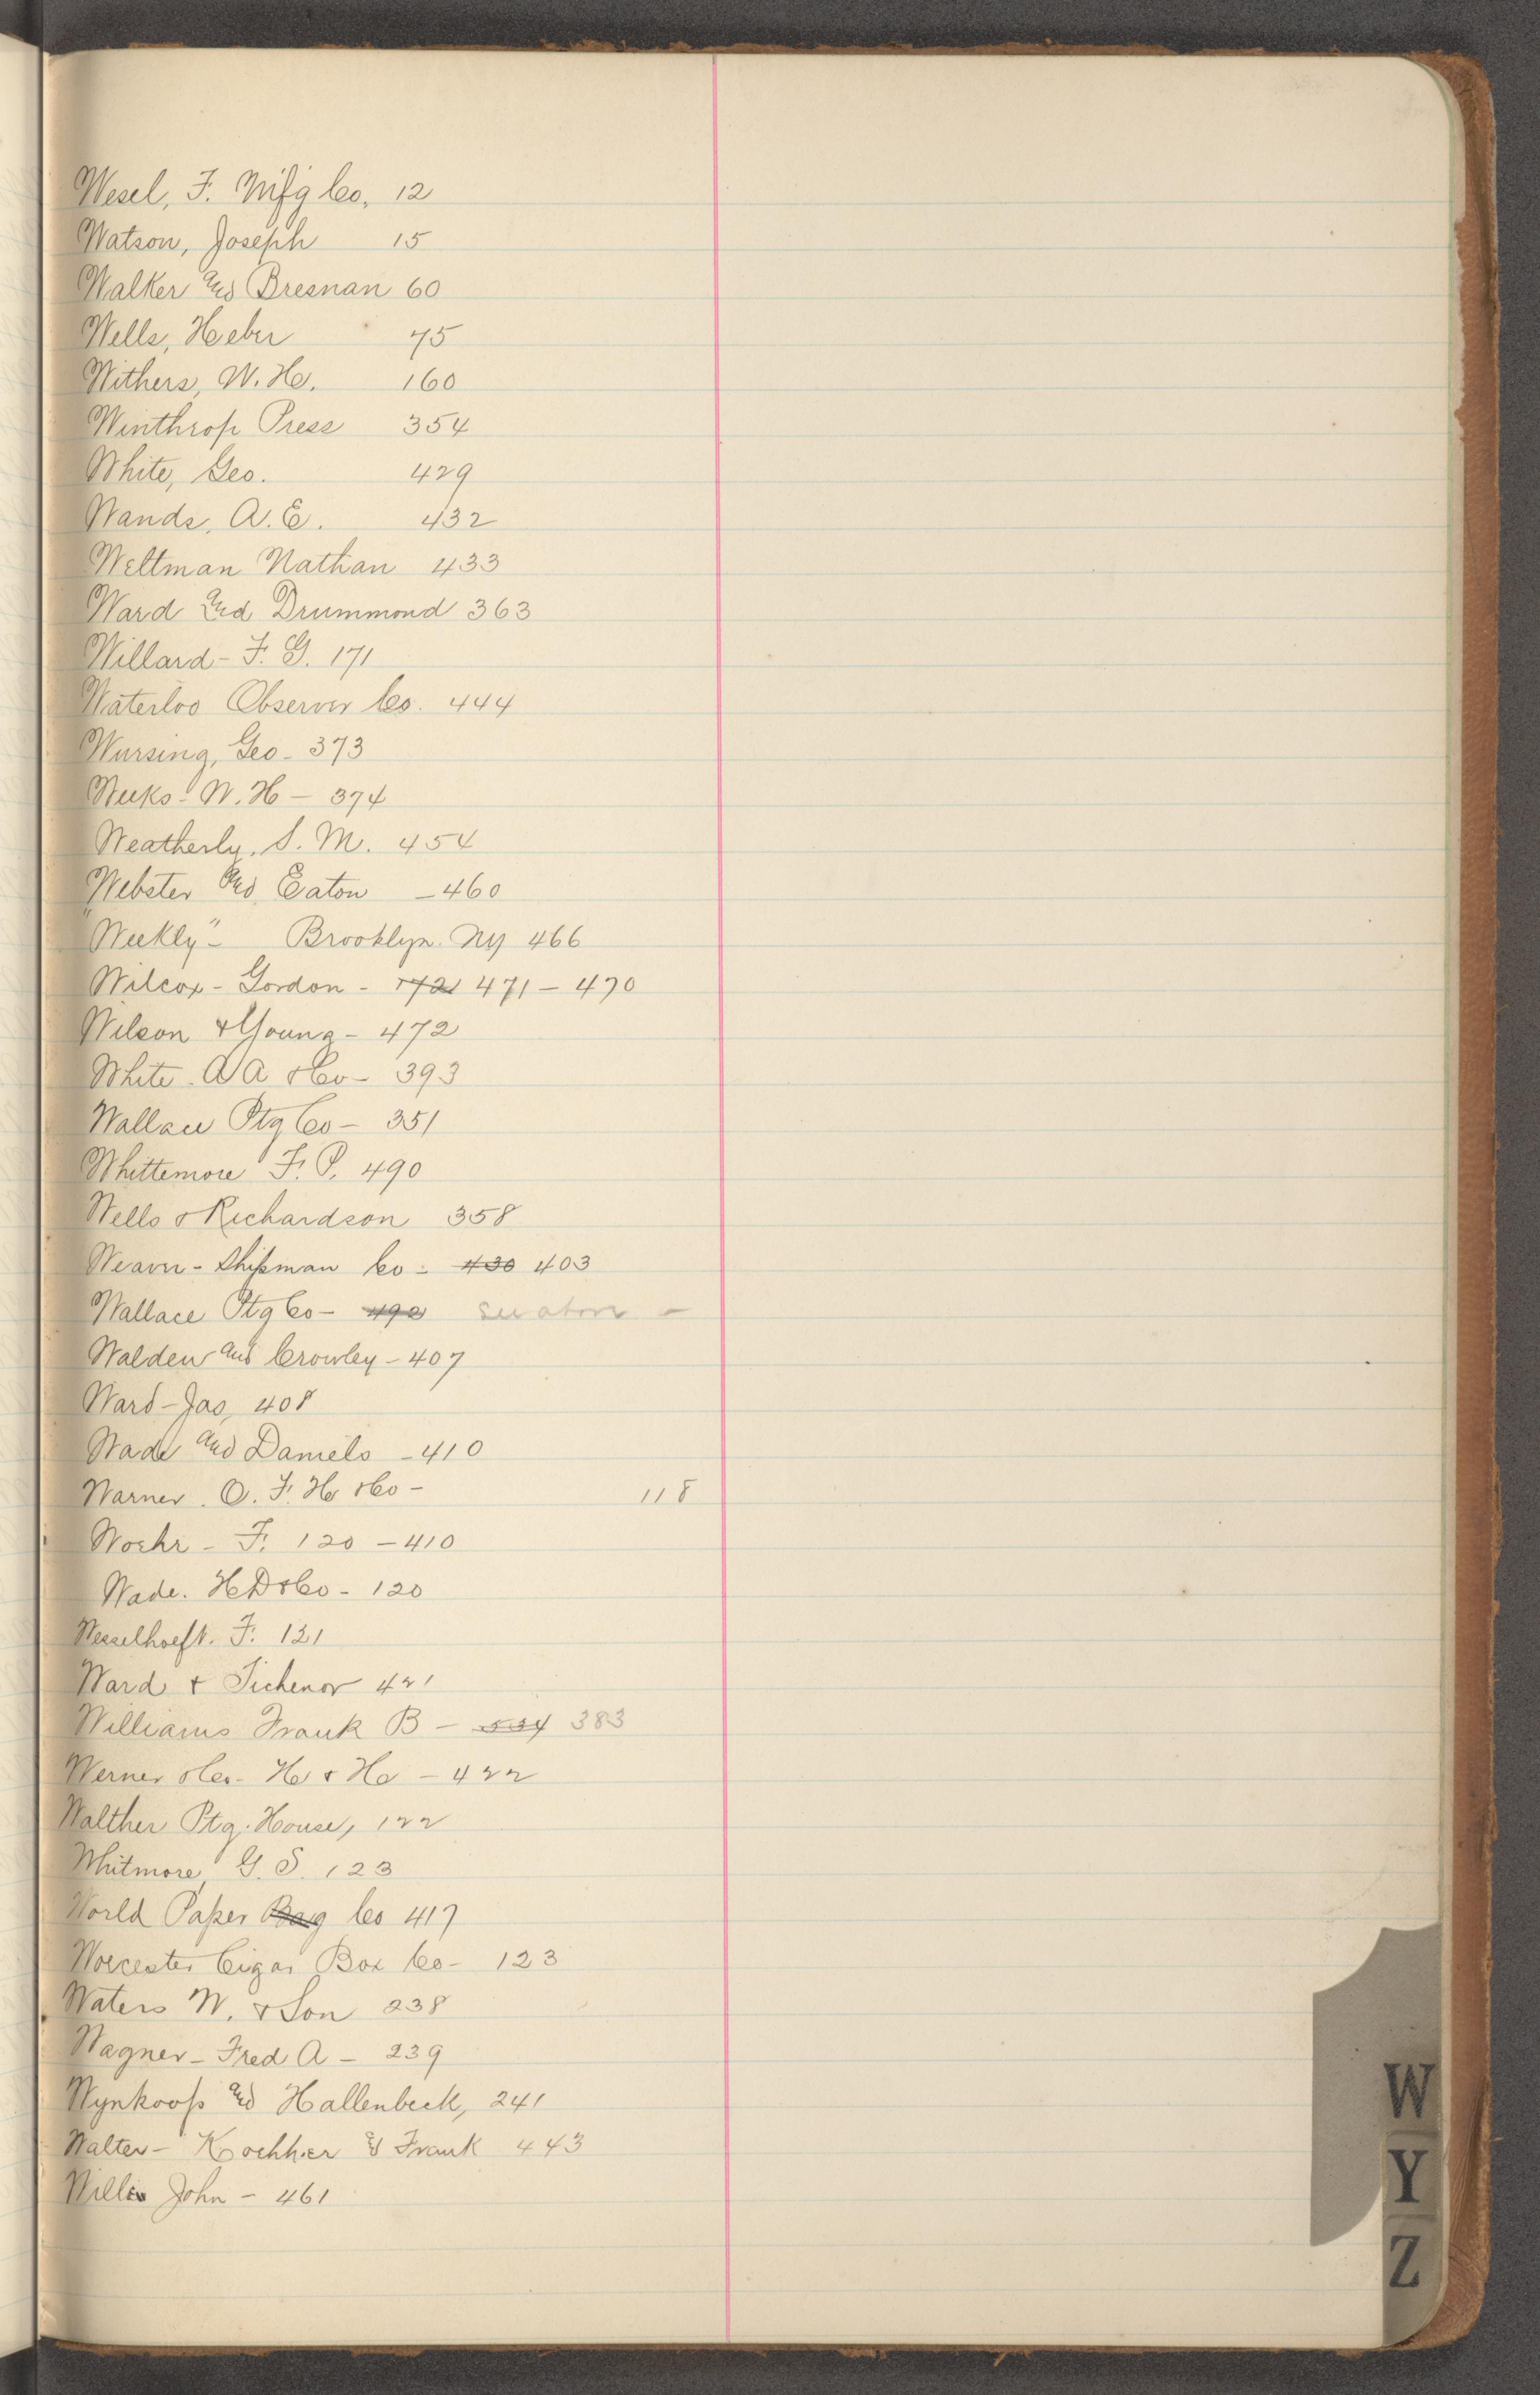 Wesel, F. Mifg Co, 12
Watson, Joseph 15
Walker and Bresnan 60
Wells, Heber 75
Withers, W. H. 160
Winthrop Press 354
White, Geo. 429
Wands, A. E. 432
Weltman Nathan 433
Ward and Drummond 363
Willard - F. G. 171
Waterloo Observer Co. 444
Wursing, Geo - 373
Weeks - W. H - 374
Weatherly, S. M. 454
Webster and Eaton - 460
"Weekly" - Brooklyn. NY 466
Wilcox - Gordon - 471 - 470
Wilson & Young - 472
White. A A & Co - 393
Wallace Ptg Co - 351
Whittemore F. P. 490
Wells & Richardson 358
Weaver - Shipman Co - 430 403
Wallace Ptg Co - 490 see above -
Walden and Crowley - 407
Ward - Jas, 408
Wade and Daniels - 410
Warner. O. F. H & Co - 118
Woehr - F. 120 - 410
Wade. H D & Co - 120
Wesselhoeft. F. 121
Ward & Tichenor 421
Williams Frank B - 534 383
Werner & Co - H & H - 422
Walther Ptg. House, 122
Whitmore, G. S. 123
World Paper Bag Co 417
Worcester Cigar Box Co - 123
Waters W. & Son 238
Wagner - Fred A - 239
Wynkoop and Hallenbeck, 241
Walter - Kochher & Frank 443
Willis John - 461
W
Y
Z